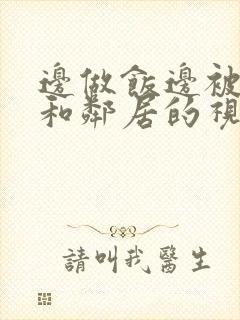 邊做飯邊被
和鄰居的視
請叫我醫生